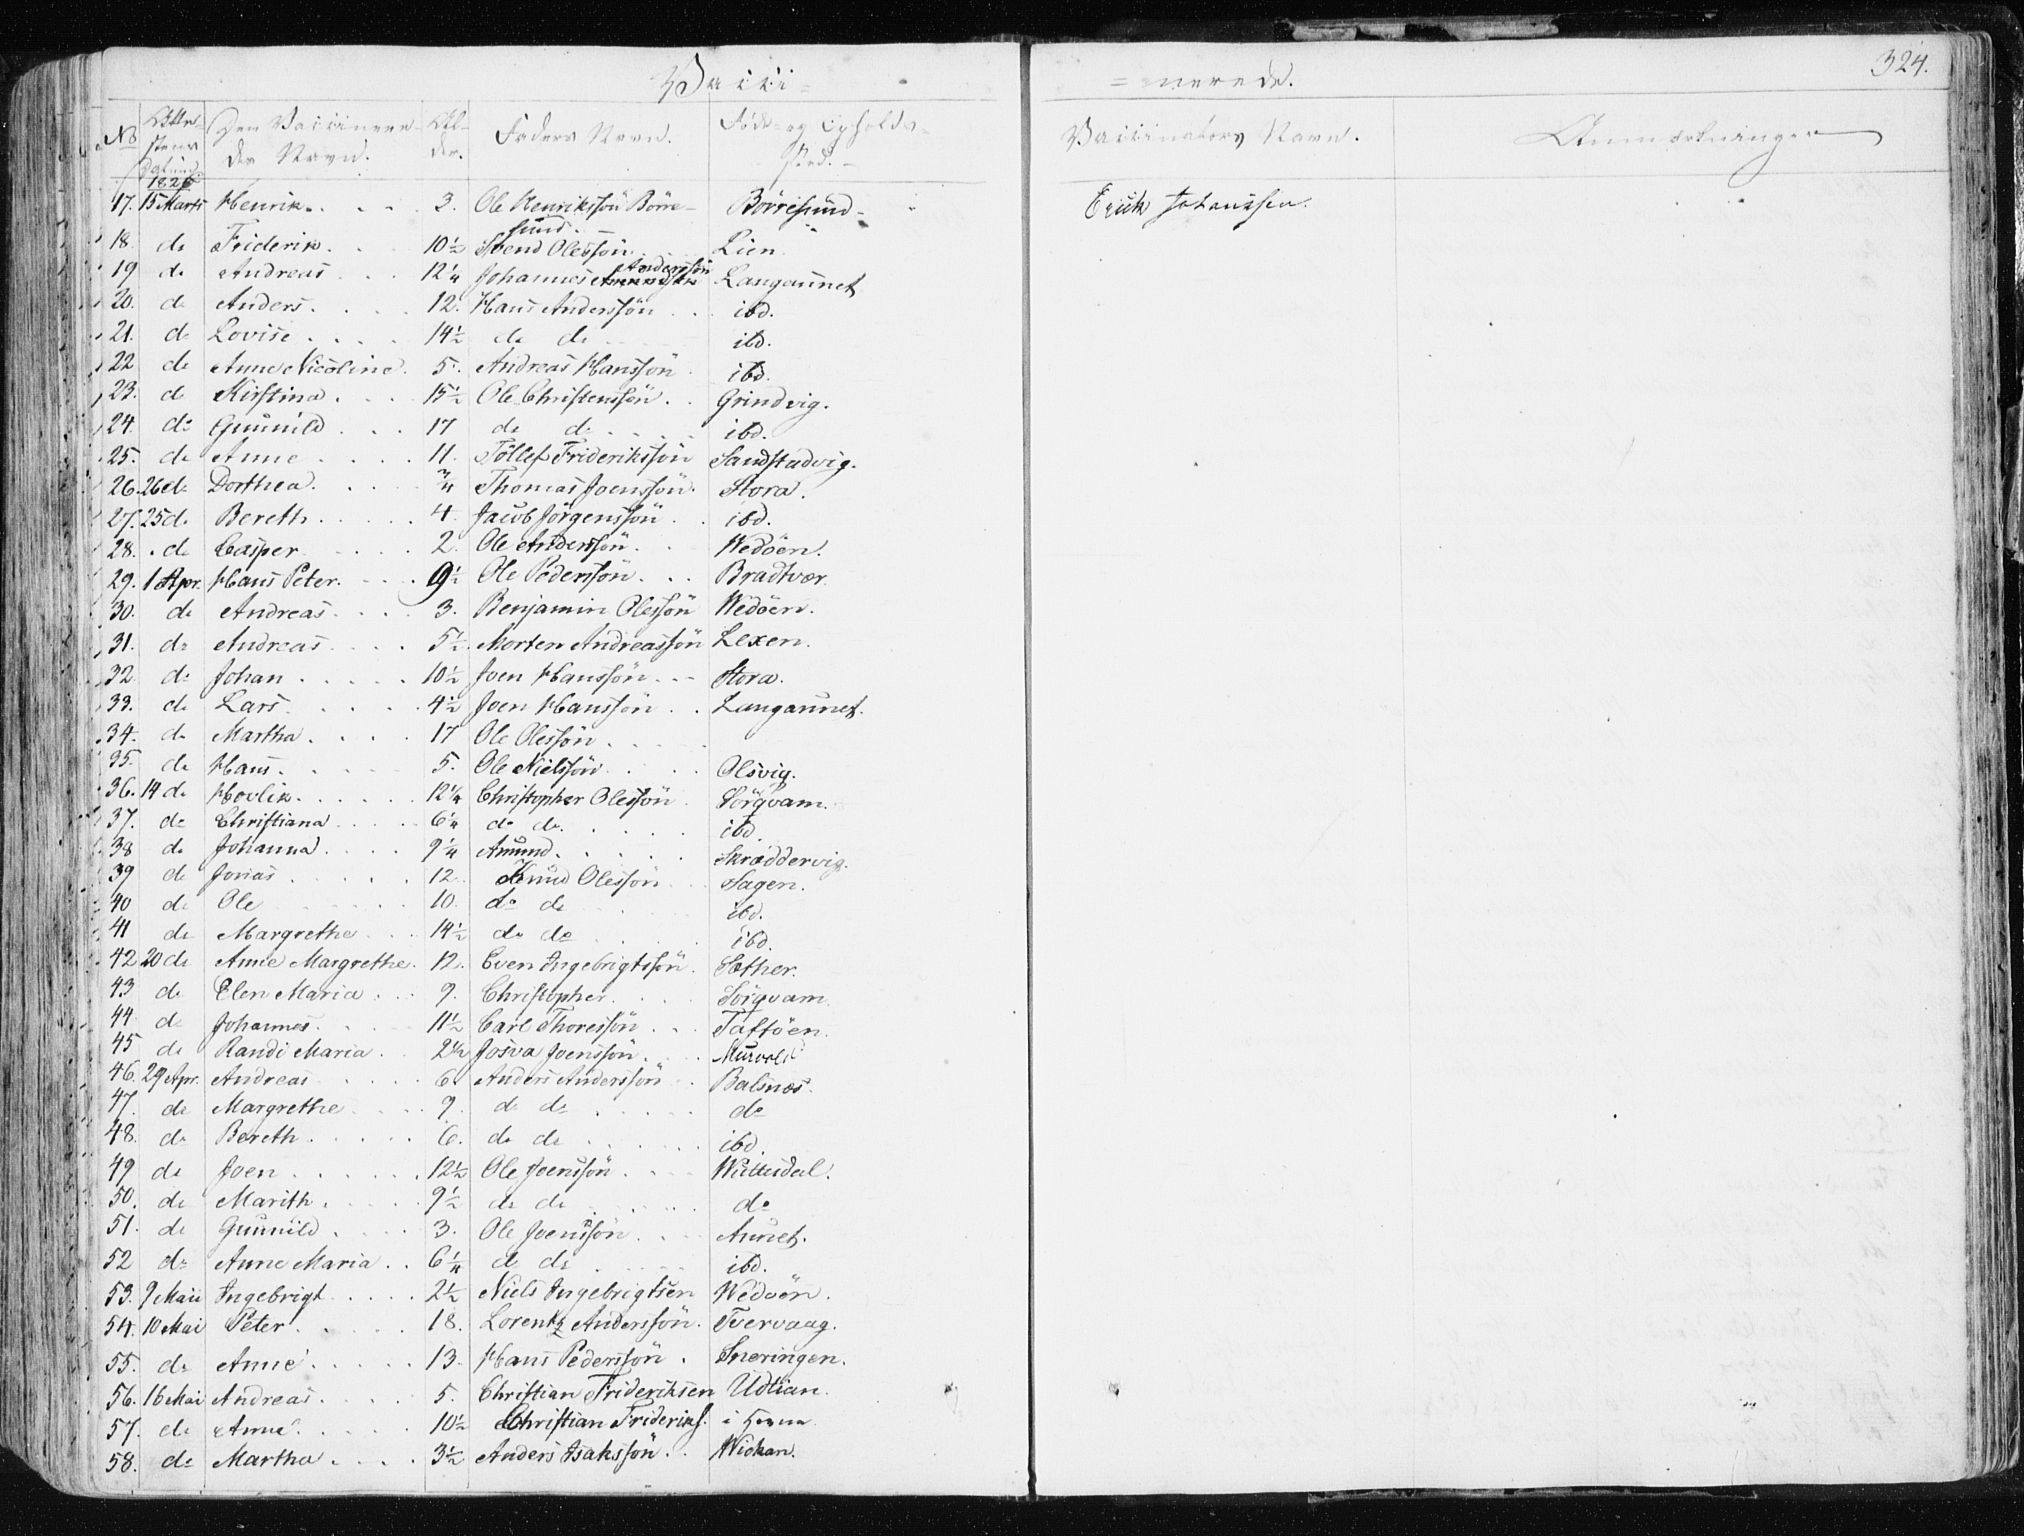 Vacci= =nerede. 324.
No Attestens Datum Den Vaccineredes Navn. Alder. Faders Navn. Föde- og Opholds-Sted. Vaccinators Navn. Anmærkninger
1826
17. 15 Marts Henrik. 3. Ole Henriksön Börre- Börresund Erich Johanssen.
sund.
18. do Friderik. 10½ Svend Olessön Lien.
19 do Andreas 12¼ Johannes Anderssön Langaunet
20. do Anders. 12. Hans Anderssön ibd.
21. do Lovise 14½ do do ibd.
22 do Anne Nicoline. 5. Andreas Hanssön ibd.
23. do Kirstina 15½ Ole Christenssön. Grindvig.
24. do Gunnild 17 do do ibd.
25. do Anne 11. Töllef Frideriksson Sandstadvig.
26. 26 do Dorthea. ¾ Thomas Joenssön. Stora.
27. 25 do Bereth. 4. Jacob Jörgenssön ibd.
28. do Casper 2. Ole Anderssön. Wedöen.
29. 1 Apr. Hans Peter. 9½ Ole Pederssön. Bradtvær.
30. do Andreas 3. Benjamin Olessön Wedöen.
31. do Andreas 5½ Morten Andreassön Lexen.
32 do Johan 10½ Joen Hanssön Stora.
33. do Lars 4½ Joen Hanssön Langaunet.
34. do Martha 17 Ole Olessön
35. do Hans. 5. Ole Nielssön Olsvig.
36. 14 do Hovlik. 12¼ Christopher Olessön Sörqvam.
37. do Christiana 6¼ do do. ibd.
38 do Johanna 9¼ Amund. Skræddervig.
39 do Jonas 12. Knud Olessön Sagen.
40 do Ole 10. do do ibd.
41 do Margrethe 14½ do do ibd.
42 20 do Anne Margrethe. 12. Even Ingebrigtssön. Sæther.
43 do Elen Maria 9. Christopher. Sörqvam.
44 do Johannes. 11½ Carl Thoressön Taftöen.
45 do Randi Maria 2½ Josva Joenssön. Murvold
46. 29 Apr. Andreas 6. Anders Anderssön Balsnæs.
47. do Margrethe 9. do do do
48. do Bereth 6. do do ibd.
49 do Joen 12½ Ole Joenssön Wuttudal.
50. do Marith 9½ do do do
51. do Gunnild 3. Ole Joenssön. Aunet.
52 do Anne Maria 6¼ do do ibd.
53. 9 Maii Ingebrigt 2½ Niels Ingebrigtsen Wedöen.
54. 10 Mai Peter 18. Lorentz Anderssön. Tvervaag.
55. do Anne 13. Hans Pederssön. Sneringen.
56. 16 Mai Andreas 5. Christian Frideriksen Udtian.
57. do Anne 10½ Christian Frideriks. i Hevne
58. do Martha 3½ Anders Isakssön. Wichan.